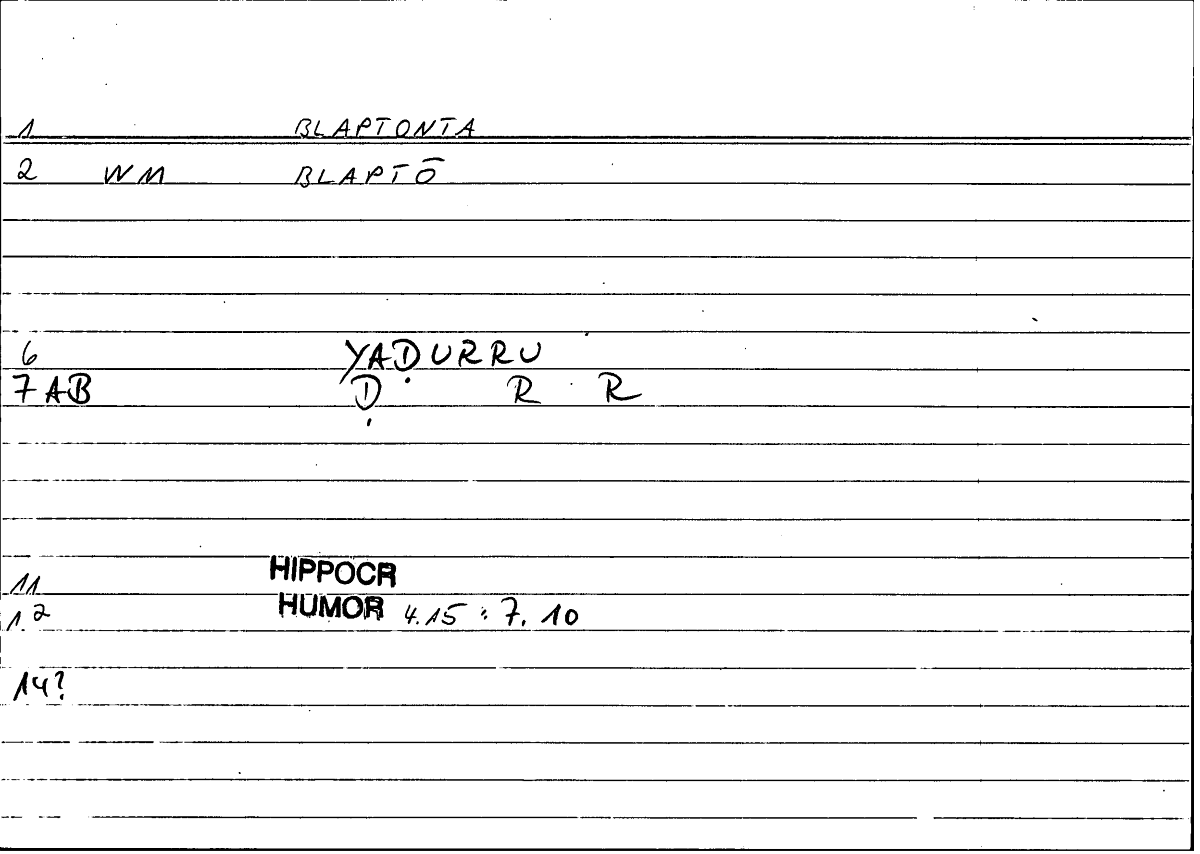 1 BLAPTONTA
2 WM BLAPTŌ
6 YAḌURRU
7 AB Ḍ R R
11 HIPPOCR
12 HUMOR 4.15 : 7.10
14?